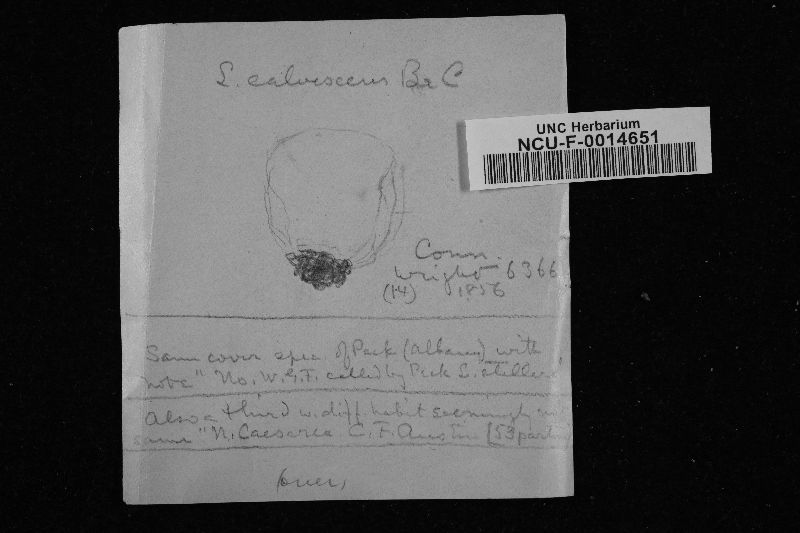 L. calvescens B & C
UNC Herbarium
NCU-F-0014651
Conn.
Wright 6366
(14) 1856
Same cover spec. of Peck (Albany) with
note "No. W.G.F. called by Peck L.
Also a third w. diff. habit seemingly
same "N. Caesarea C. F. Austin (53 part
(over)